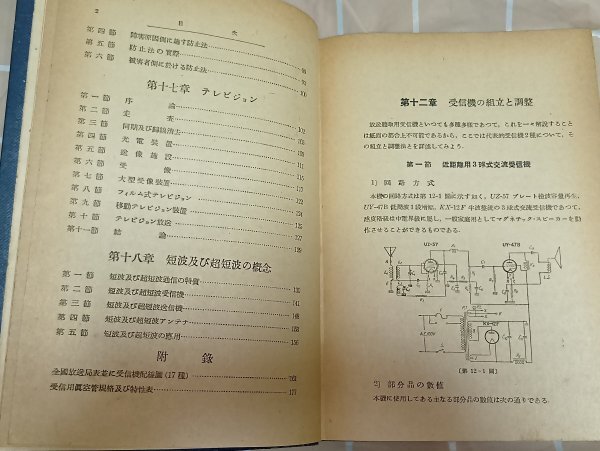 2 目次
第四節 障害原因側に施す防止法 98
第五節 防止法の實際 99
第六節 被害者側に於ける防止法 100
第十七章 テレビジョン
第一節 序論 102
第二節 走査 103
第三節
第四節 光電裝置
第五節 送像施設 111
第六節 受機
第七節 大型受像裝置 121
第八節 フィルム式テレビジョン
第九節 移動テレビジョン裝置
第十節 テレビジョン放送 127
第十一節 結論 129
第十八章 短波及び超短波の概念
第一節 短波及び超短波通信の特質 130
第二節 短波及び超短波受信機 141
第三節 短波及び超短波送信機 148
第四節 短波及び超短波アンテナ
第五節 短波及び超短波の應用 156
附錄
全國放送局表並に受信機配線圖(17種)
受信用眞空管規格及び特性表 177
第十二章 受信機の組立と調整
放送聽取用受信機といつても多種多樣であつて、これを一々解說すること
は紙面の都合上不可能であるから、ここでは代表的受信機2種について、そ
の組立と調整法とを詳述してみよう。
第一節 近距離用3球式交流受信機
1) 回路方式
本機の回路方式は第12-1圖に示す如く、UZ-57 プレート檢波容量再生、
UY-47B 低周波1段增幅、KX-12F 半波整流の3球式交流受信機であつて、
感度階級は中電界級に屬し、一般家庭用としてマグネチック・スピーカーを動
作させることができるものである。
UZ-57
UY-47B
KX-12F
A.C. 100V
[第12-1圖]
2) 部分品の數値
本機に使用してある主なる部分品の數値は次の通りである。